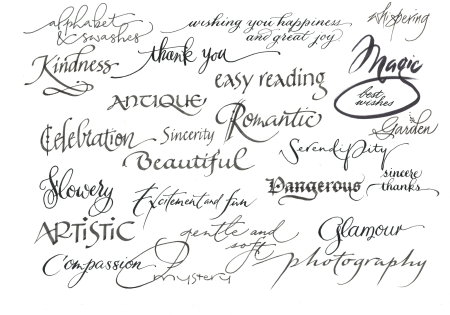 alphabet
& swashes
wishing you happiness
and great joy
whispering
Kindness
thank you
Magic
easy reading
best
wishes
ANTIQUE
Romantic
Garden
Celebration
Sincerity
Serendipity
Beautiful
sincere
thanks
Flowery
Excitement and fun
Dangerous
ARTiSTiC
gentle and
soft
Glamour
Compassion
mystery
photography